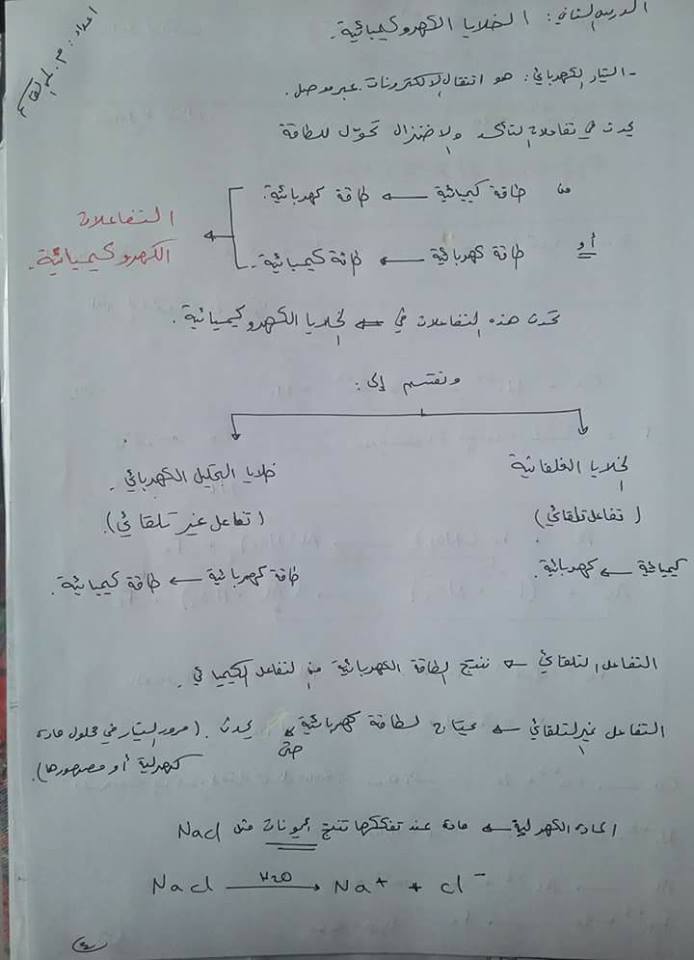 الدرس الثاني: الخلايا الكهروكيميائية.
اعداد: م.
- التيار الكهربائي: هو انتقال الإلكترونات عبر موصل.
يحدث في تفاعلات التأكسد والاختزال تحوّل للطاقة
من طاقة كيميائية ← طاقة كهربائية.
أو طاقة كهربائية ← طاقة كيميائية.
التفاعلات
الكهروكيميائية.
تحدث هذه التفاعلات في ← الخلايا الكهروكيميائية.
وتقسم إلى:
الخلايا الغلفانية
(تفاعل تلقائي)
كيميائية ← كهربائية.
خلايا التحليل الكهربائي.
(تفاعل غير تلقائي).
طاقة كهربائية ← طاقة كيميائية.
التفاعل التلقائي ← ننتج الطاقة الكهربائية من التفاعل الكيميائي.
التفاعل غير التلقائي ← يحتاج لطاقة كهربائية حتى يحدث. (مرور التيار في محلول مادة
كهرلية أو مصهورها).
المادة الكهرلية ← مادة عند تفككها تنتج أيونات مثل NaCl
NaCl H2O → Na+ + Cl-